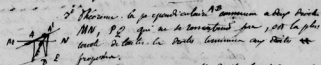 3° Théorème. la perpendiculaire AB commune a deux droites
MN, PQ qui ne se rencontrent pas, est la plus
courte de toutes les droites terminées aux droites
proposées.
A
M N
B